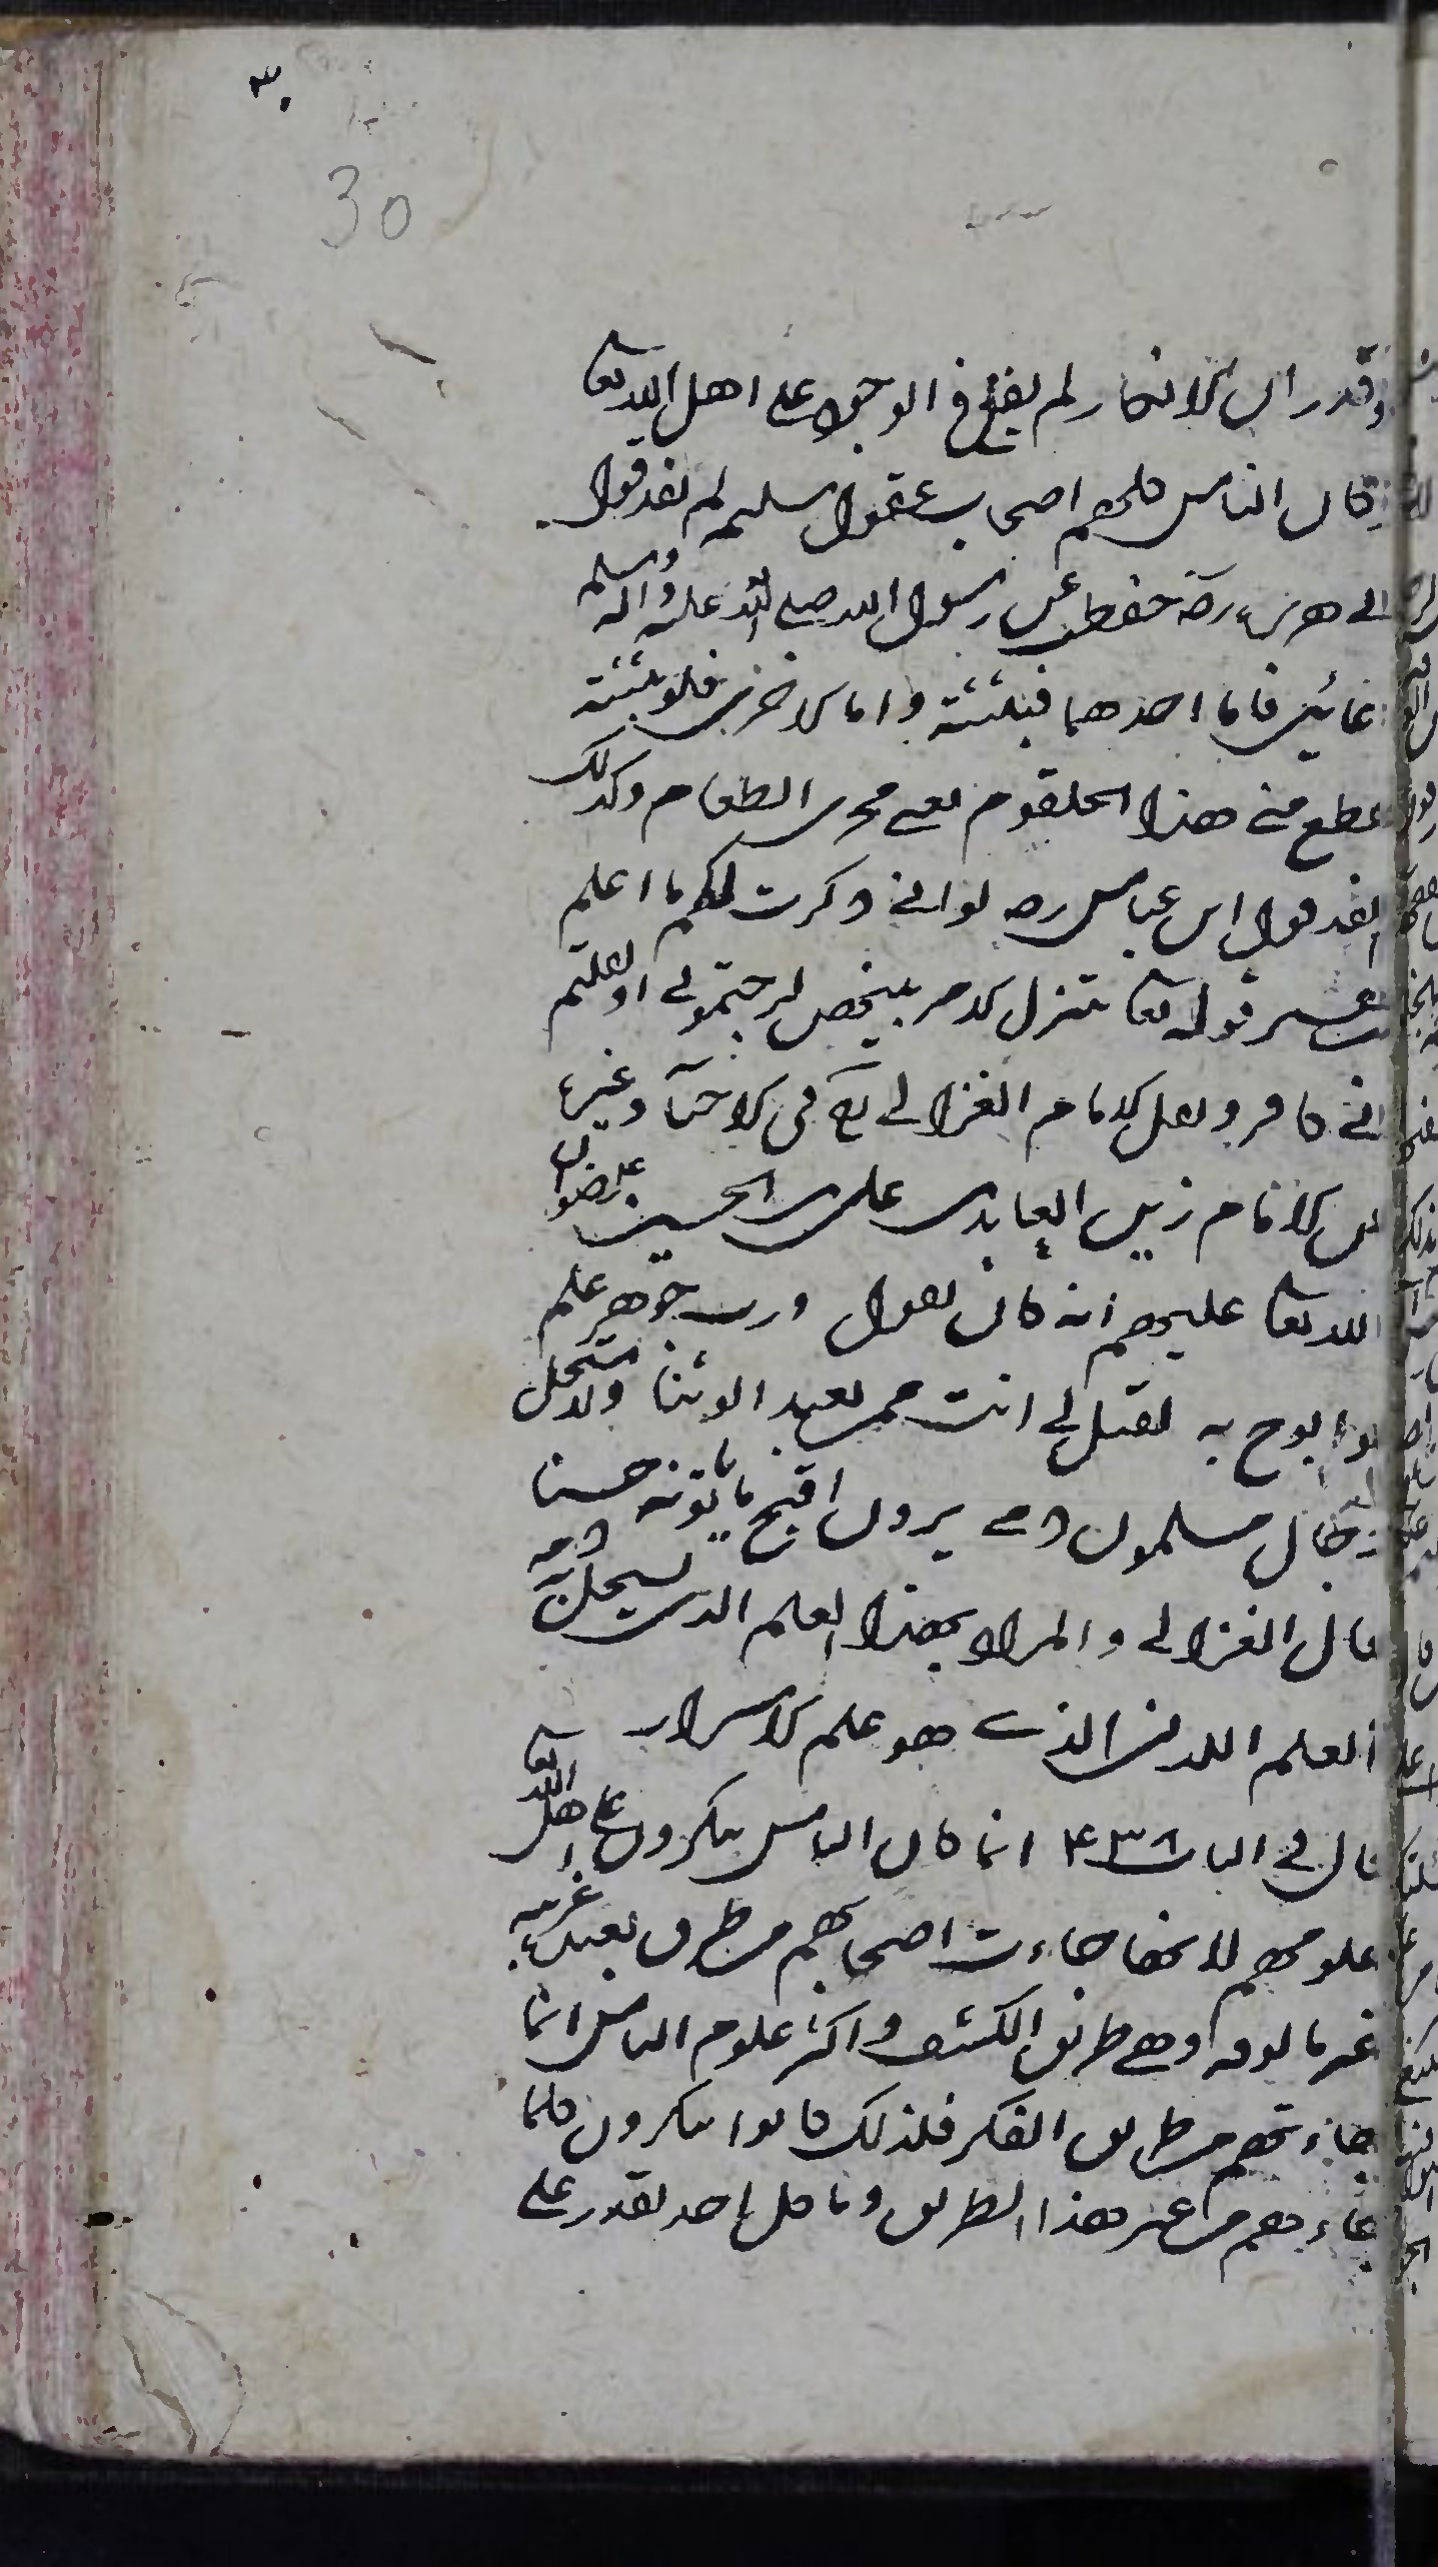 ٣٠
30
وقدر ان الانكار لم يقع في الوجود على اهل الله تعا
كان الناس كلهم اصحاب عقول سليمه لم يفد قول
ابي هريره رضه حفظت عن رسول الله صلى الله عليه واله وسلم
وعائين فاما احدهما فبثثته واما الاخر فلو بثثته
قطع مني هذا الحلقوم يعني مجرى الطعام وكذلك
لم يفد قول ابن عباس رضه لو اني ذكرت لكم ما اعلم
من تفسير قوله تعا يتنزل الامر بينهن لرجمتموني او لقلتم
اني كافر ونقل الامام الغزالي في الاحيا وغيره
عن الامام زين العابدين علي بن الحسين رضوان
الله تعا عليهم انه كان يقول ورب جوهر علم
لو ابوح به لقيل لي انت ممن يعبد الوثنا ولاستحل
رجال مسلمون دمي يرون اقبح ما ياتونه حسنا
قال الغزالي والمراد بهذا العلم الذي يستحلون به دمه
العلم اللدني الذي هو علم الاسرار
قال في الباب ٤٣٨ انما كان الناس ينكرون على اهل الله تعا
علومهم لانها جاءت اصحابهم من طرق بعيده غريبه
غير مالوفه وهي طريق الكشف واكثر علوم الناس انما
جاءتهم من طريق الفكر فلذلك كانوا ينكرون كلما
جاءهم من غير هذا الطريق وما كل احد يقدر على